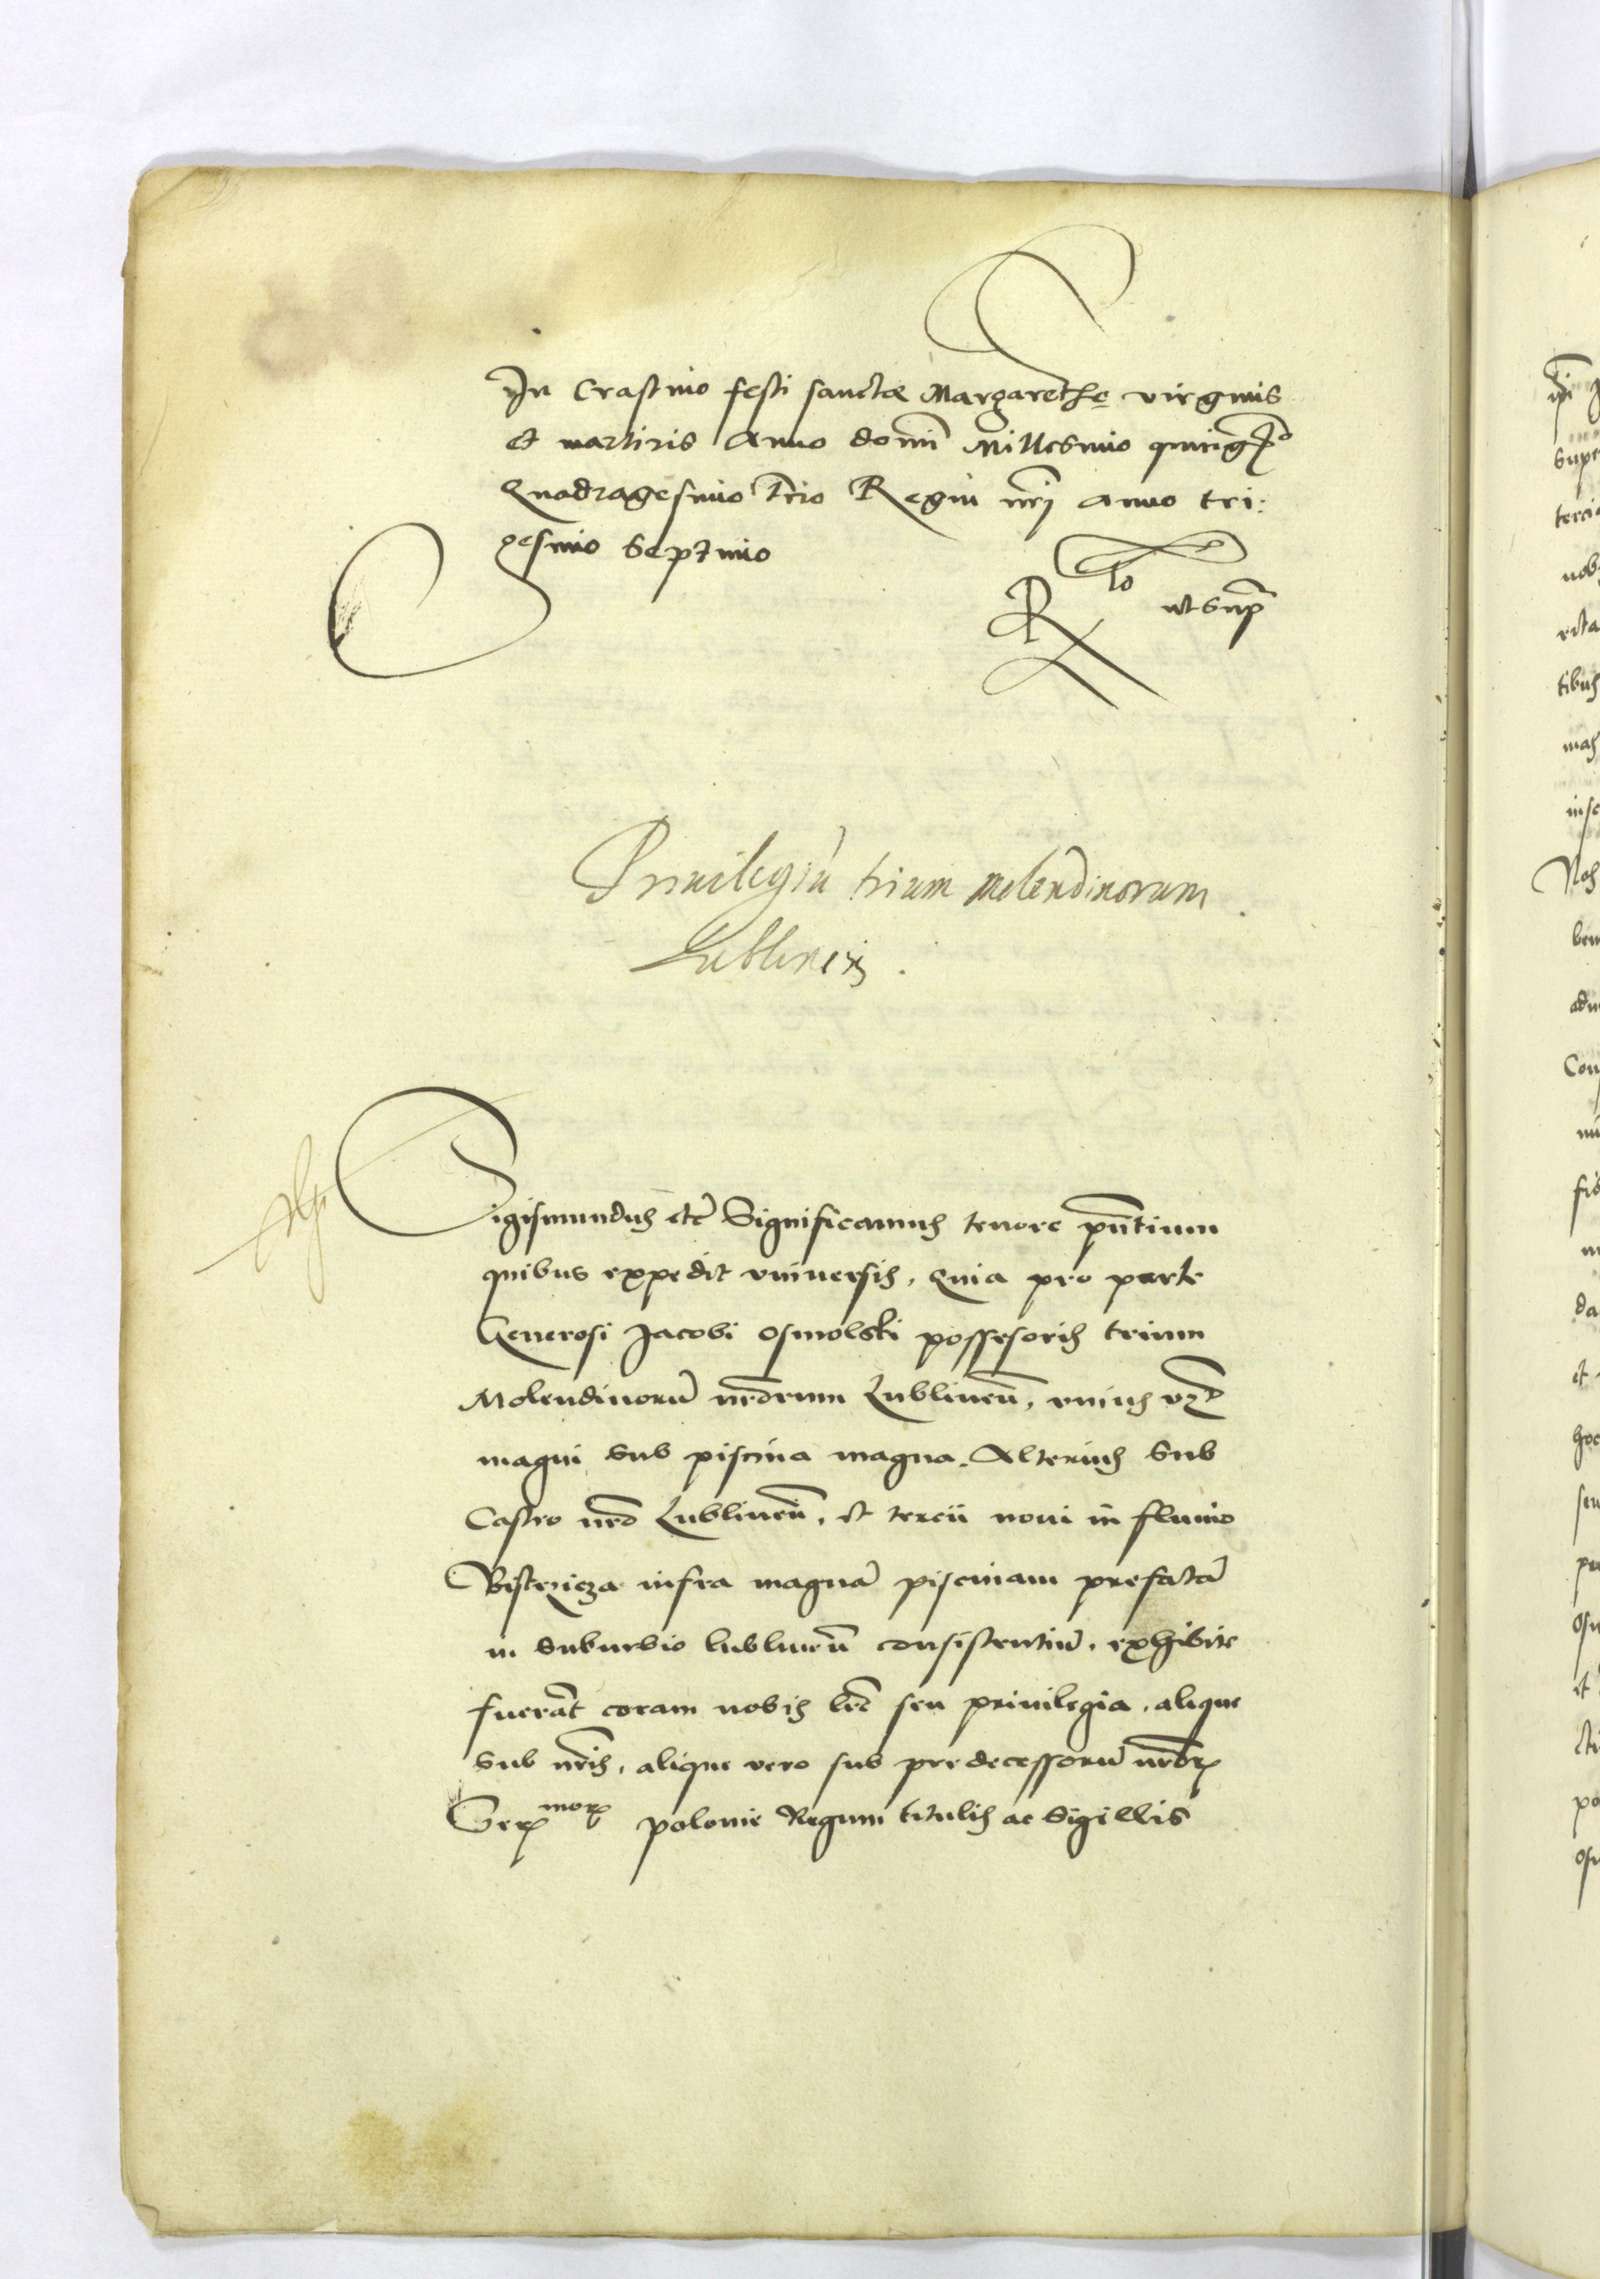 In Crastino festi sanctæ Margarethę virginis
et martiris Anno domī Millesimo quingᵒ
Quadragesimo Trio Regni nrī anno tri:
gesimo Septimo
Rᵗⁱᵒ ut sup̃
Priuilegiũ trium molendinorum
Lublineñ .
Sigismundus etc̃ Significamus tenore pñtium
quibus expedit vniuersis, Quia pro parte
Generosi Jacobi osmolski possessoris trium
Molendinorũ nr̃orum Lublineñ, vnius vꝫ
magni sub piscina magna. Alterius sub
Castro nr̃o Lublineñ, et tercii noui in fluuio
Bistrzicza infra magnã piscinam prefatã
in suburbio lublineñ consistentiũ, exhibite
fuerãt coram nobis lr̃e seu priuilegia, alique
sub nr̃is, alique vero sub predecessorũ nr̃orꝝ
Serᵐᵒʳꝝ polonie Regum titulis ac Sigillis